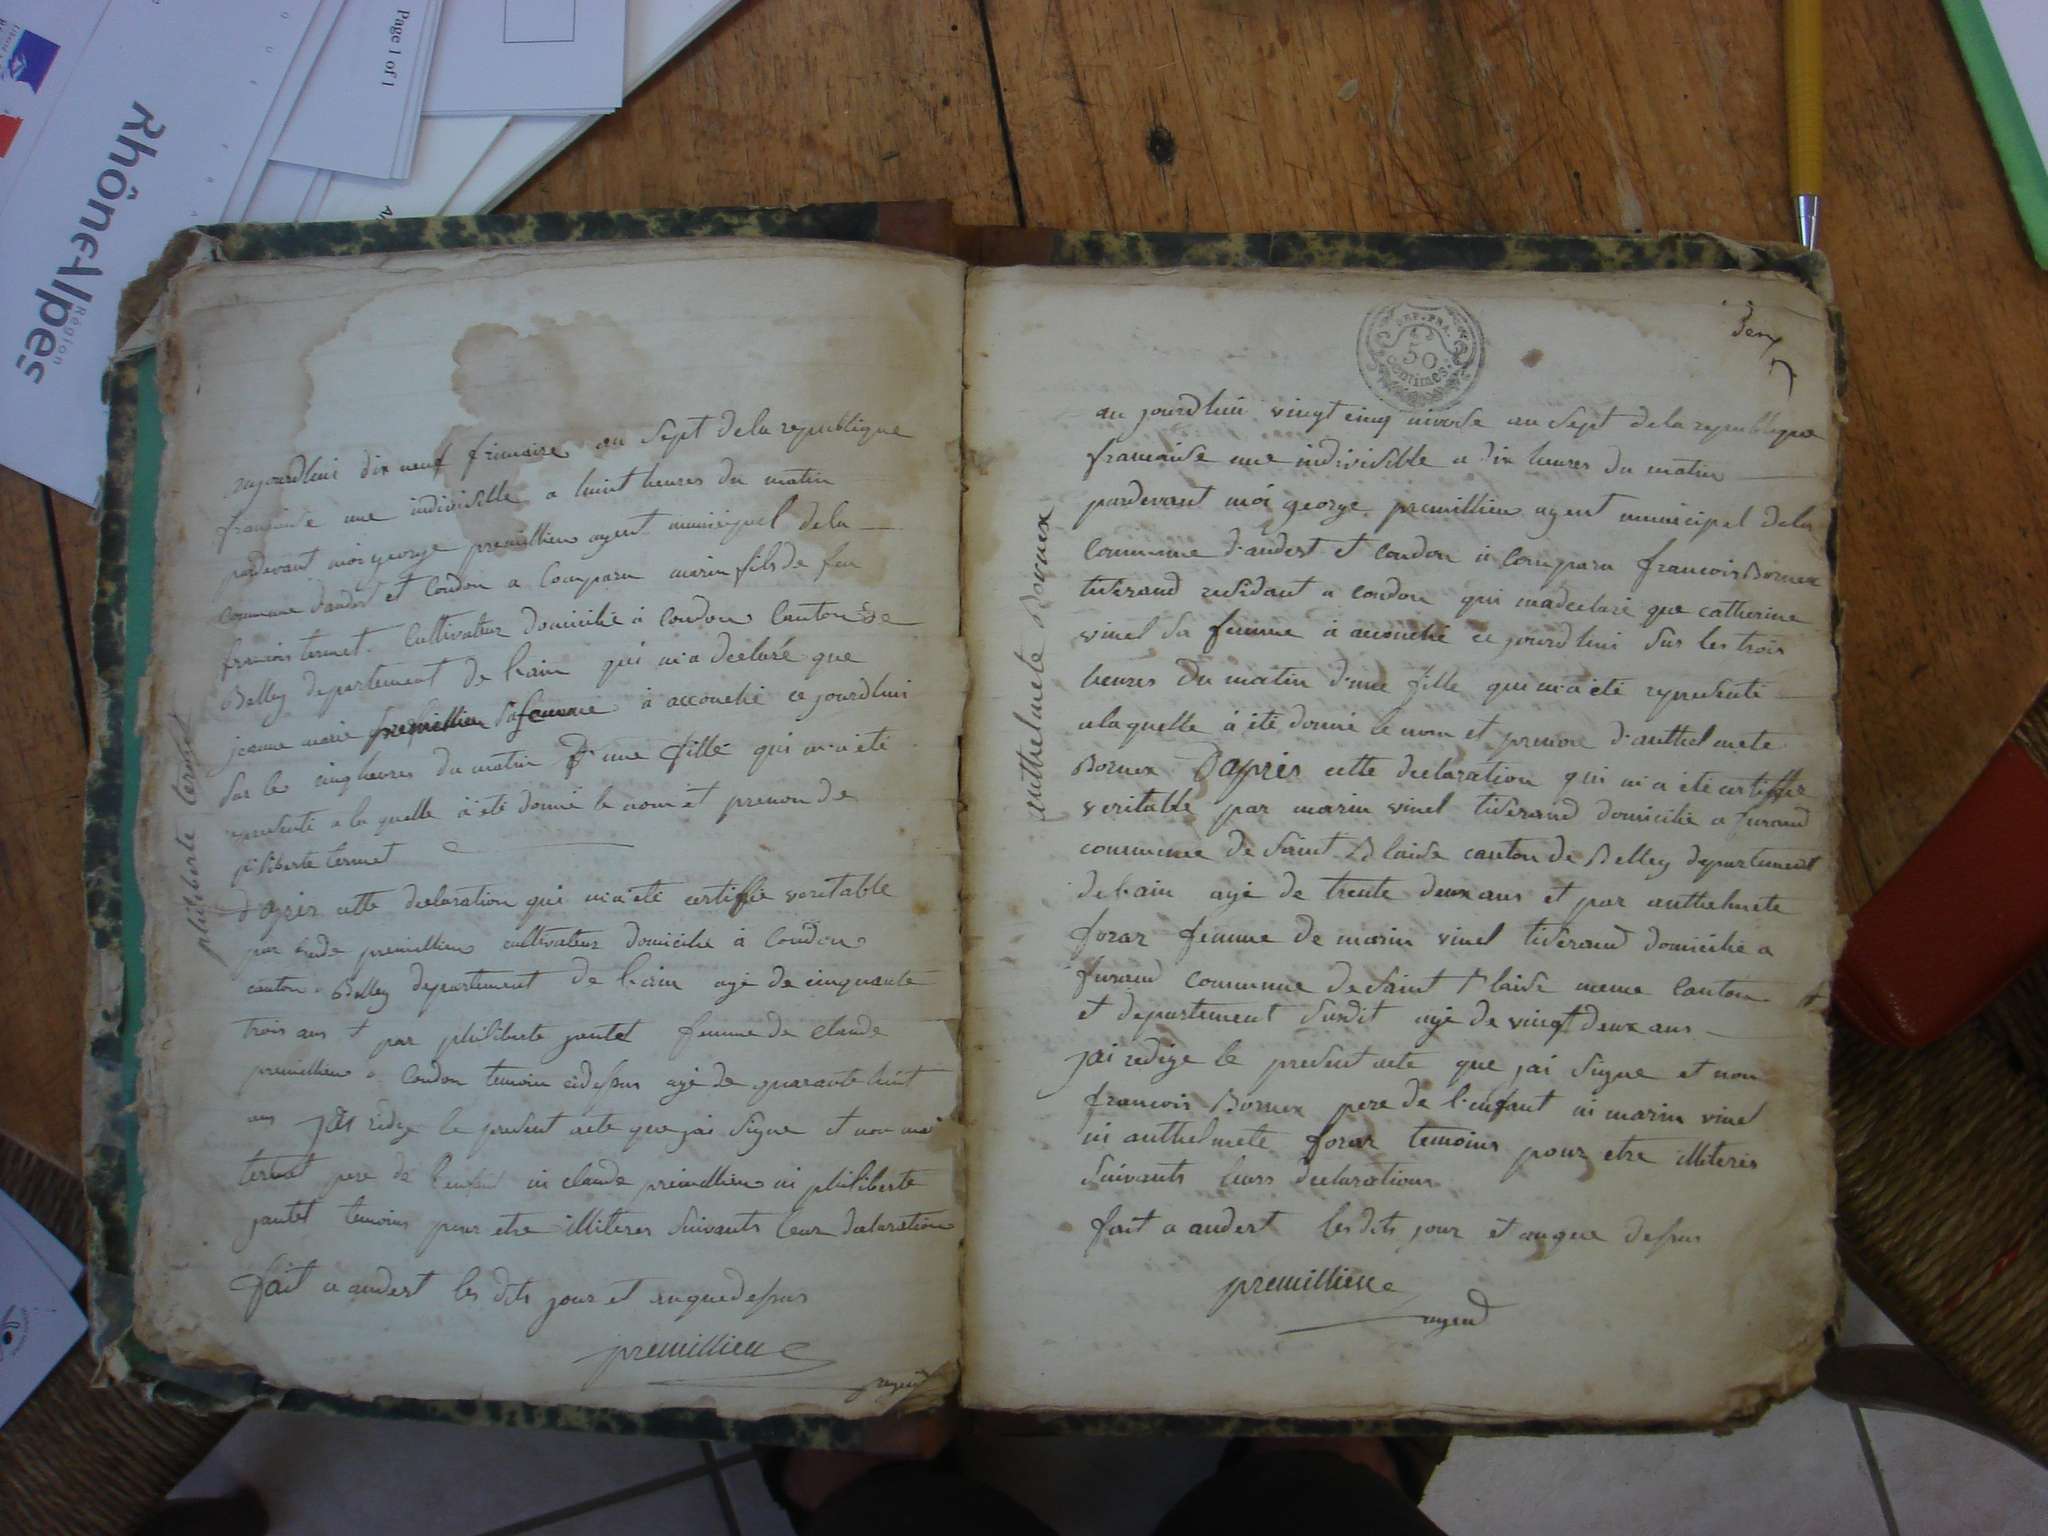 Rhône-Alpes
Région
Page 1 of 1
philiberte termet
aujourdhui dix neuf frimaire an sept dela republique
francaise une indivisible a huit heures du matin
pardevant moi george premillieu agent municipal dela
commune d'andert et Condon a Comparu marin fils de feu
francois termet Cultivateur domicilié à Condon Canton de
Belley departement de l'ain qui m'a declaré que
jeanne marie premillieu sa femme à accouché ce jourdhui
sur le cinq heures du matin d'une fille qui m'a été
representé a la quelle à été donné le nom et prenom de
philiberte termet
d'apres cette declaration qui m'a été certiffié veritable
par claude premillieu cultivateur domicilié à Condon
canton Belley departement de l'ain agé de cinquante
trois ans et par philiberte jantet femme de claude
premillieu a Condon temoin cidessus agé de quarante huit
ans jai redigé le present acte que jai signé et non
termet pere de l'enfant ni claude premillieu ni philiberte
jantet temoins pour etre illiteres suivants leur declaration
fait a andert les dits jour et an que dessus
premillieu
agent
REP. FRA.
50
centimes
deux
anthelmete Bornex
aujourdhui vingt cinq nivose an sept dela republique
francaise une indivisible a dix heures du matin
pardevant moi george premillieu agent municipal dela
Commune d'andert et Condon à Comparu francois Bornex
tisserand residant a Condon qui madeclaré que catherine
vinel sa femme à accouché ce jourdhui sur les trois
heures du matin d'une fille qui m'a été representé
alaquelle à été donné le nom et prenom d'anthelmete
Bornex D'apres cette declaration qui m'a été certiffié
veritable par marin vinel tisserand domicilié a furand
commune de saint Blaise canton de Belley departement
de l'ain agé de trente deux ans et par anthelmete
forar femme de marin vinel tisserand domicilié a
furand commune de saint Blaise meme Canton
et departement susdit agé de vingt deux ans
jai redigé le present acte que jai signé et non
francois Bornex pere de l'enfant ni marin vinel
ni anthelmete forar temoins pour etre illiterés
suivants leurs declarations
fait a andert les dits jour et an que dessus
premillieu
agent